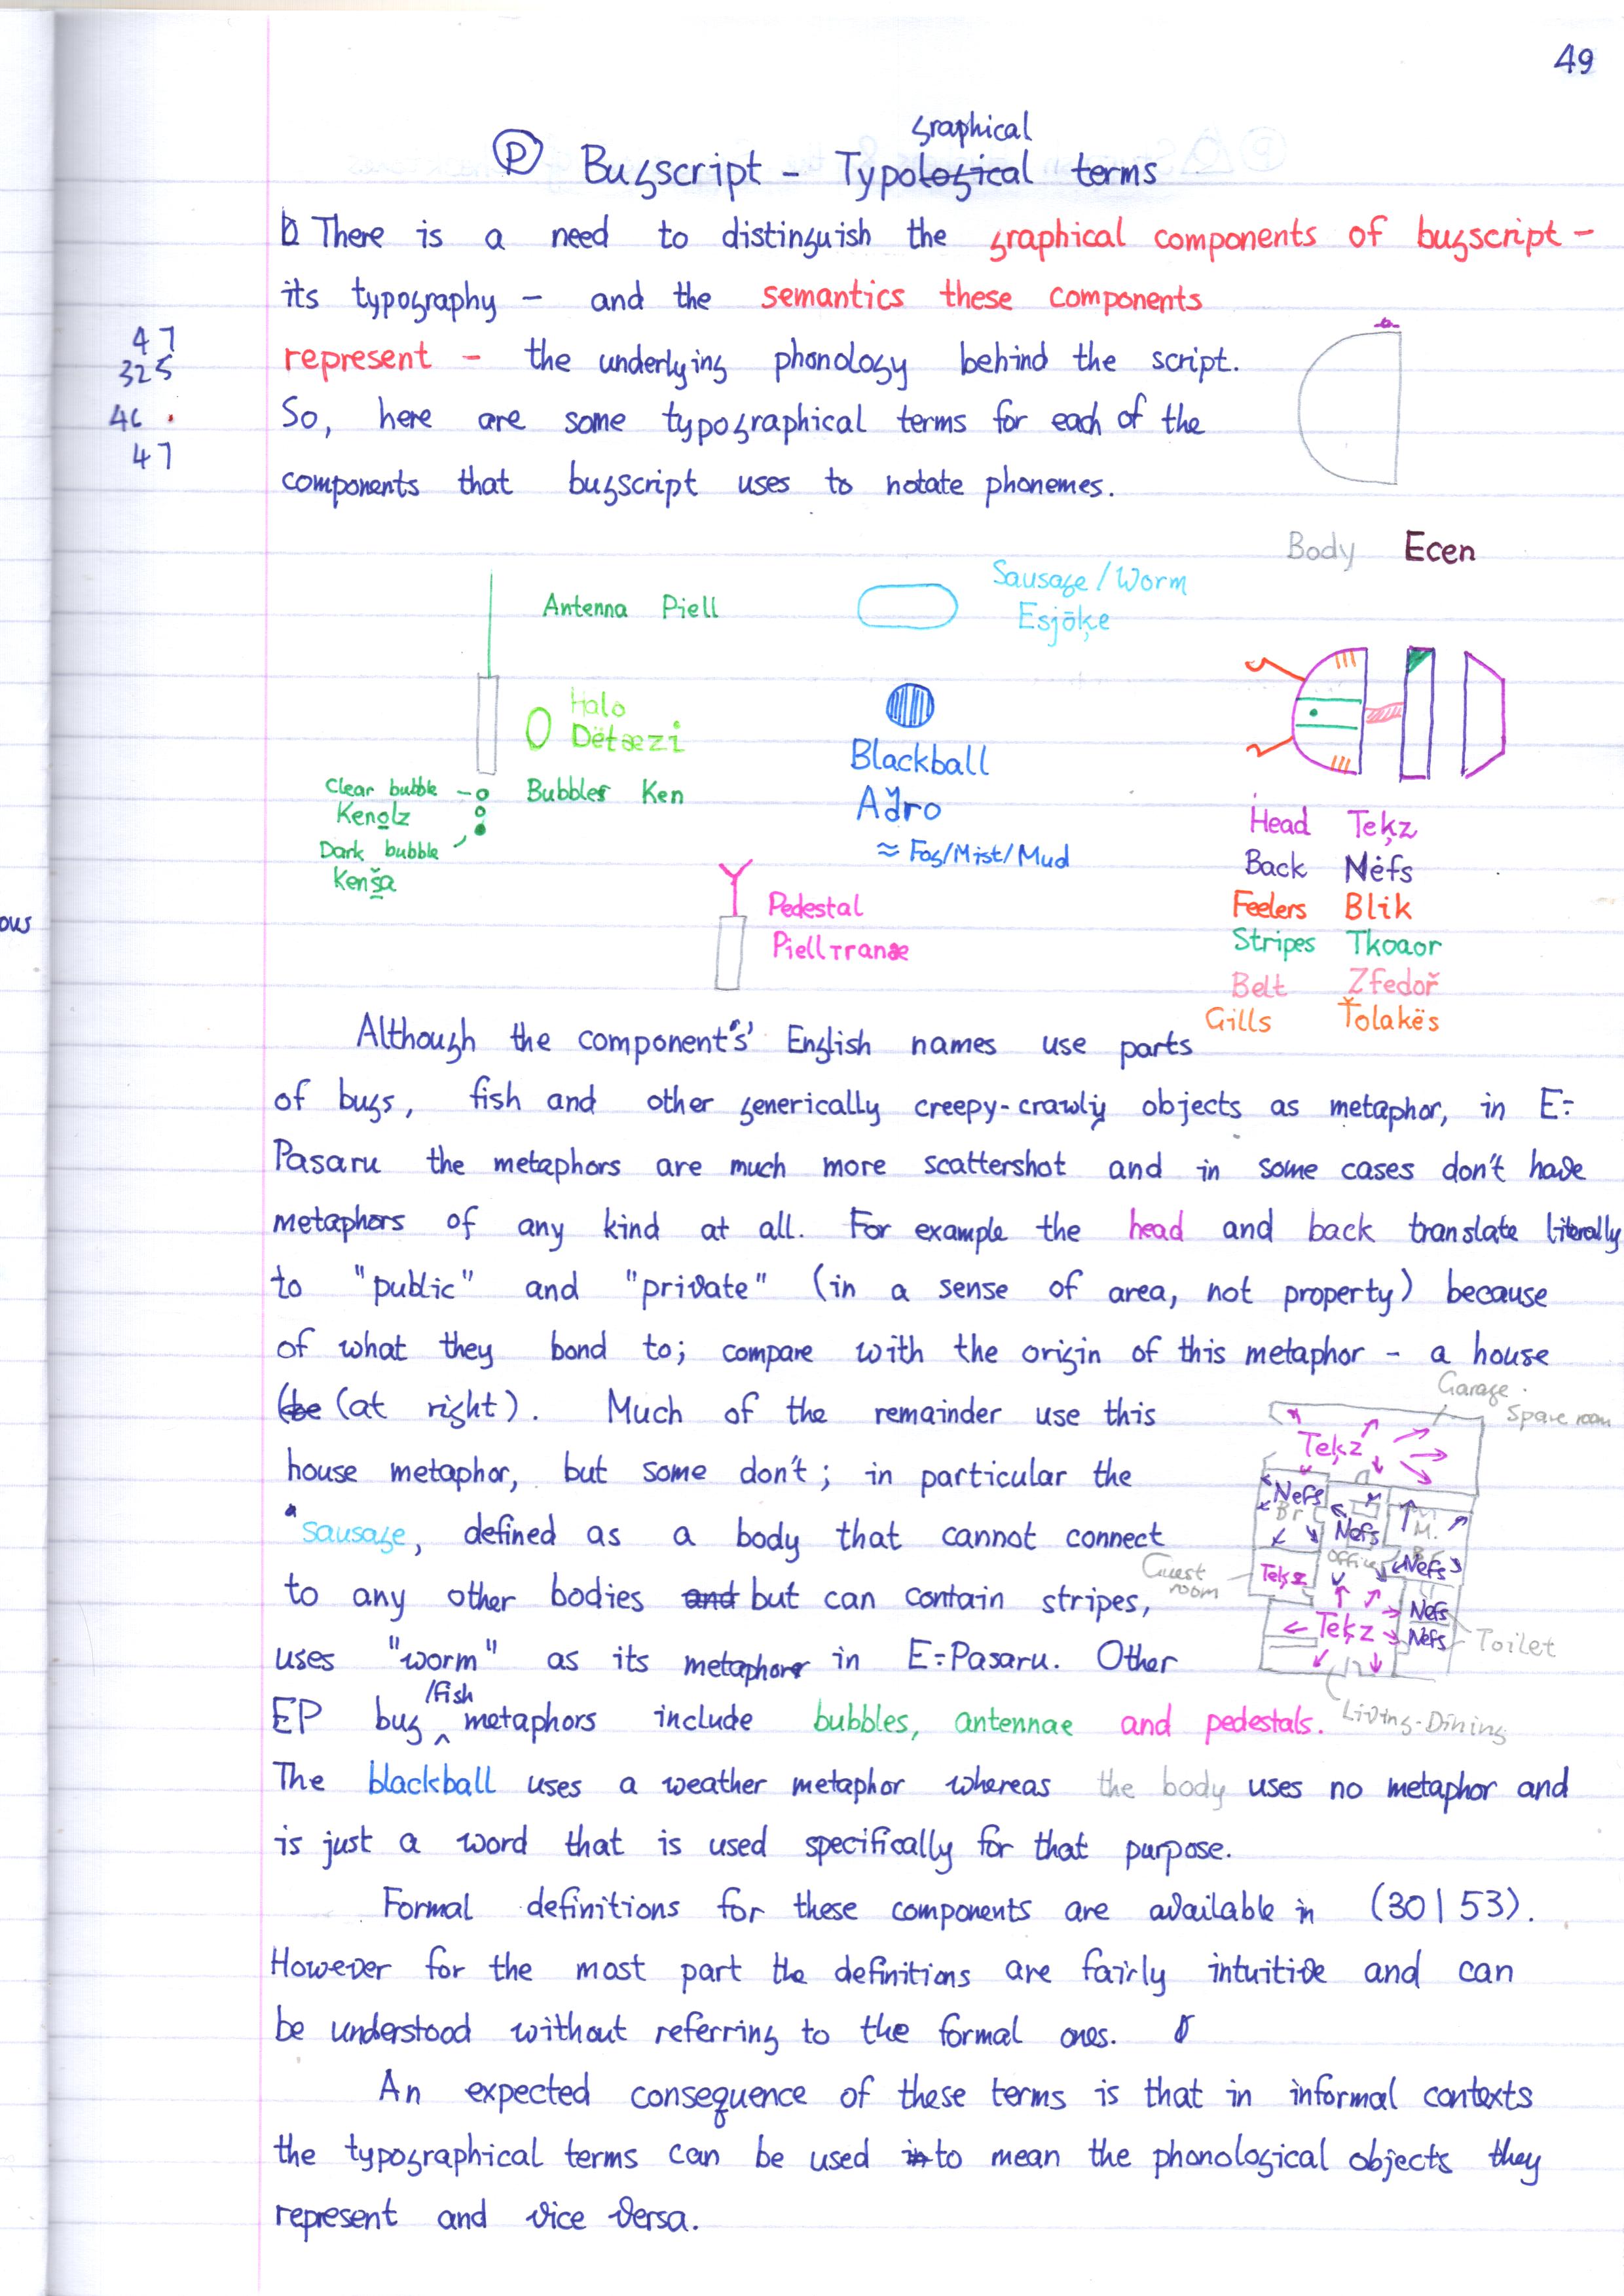 49
graphical
Ⓟ Bugscript - Typological terms
There is a need to distinguish the graphical components of bugscript -
its typography - and the semantics these components
represent - the underlying phonology behind the script.
So, here are some typographical terms for each of the
components that bugscript uses to notate phonemes.
47
325
46
47
Body Ecen
Antenna Piell
Sausage/Worm
Esjōķe
Halo
Dëtæzi
Clear bubble
Kenolz
Dark bubble
Bubbles Ken
Blackball
≈ Fog/Mist/Mud
Pedestal
Piellтranæ
Head Teķz
Back Nėfs
Feelers Blik
Stripes Tkoaor
Belt Zfedoř
Gills Ťolakës
ous
Although the components' English names use parts
of bugs, fish and other generically creepy-crawly objects as metaphor, in E=
Pasaru the metaphors are much more scattershot and in some cases don't have
metaphors of any kind at all. For example the head and back translate literally
to "public" and "private" (in a sense of area, not property) because
of what they bond to; compare with the origin of this metaphor - a house
(be (at right). Much of the remainder use this
house metaphor, but some don't; in particular the
sausage, defined as a body that cannot connect
to any other bodies and but can contain stripes,
uses "worm" as its metaphor in E=Pasaru. Other
/fish
EP bug ^ metaphors include bubbles, antennae and pedestals.
The blackball uses a weather metaphor whereas the body uses no metaphor and
is just a word that is used specifically for that purpose.
Garage
Spare room
Teķz
Nefs
Br
Nefs
M.
Office
Nefs
Guest
room
Teķz
Nefs
Teķz
Nefs
Toilet
Living-Dining
Formal definitions for these components are available in (30|53).
However for the most part the definitions are fairly intuitive and can
be understood without referring to the formal ones.
An expected consequence of these terms is that in informal contexts
the typographical terms can be used in to mean the phonological objects they
represent and vice versa.